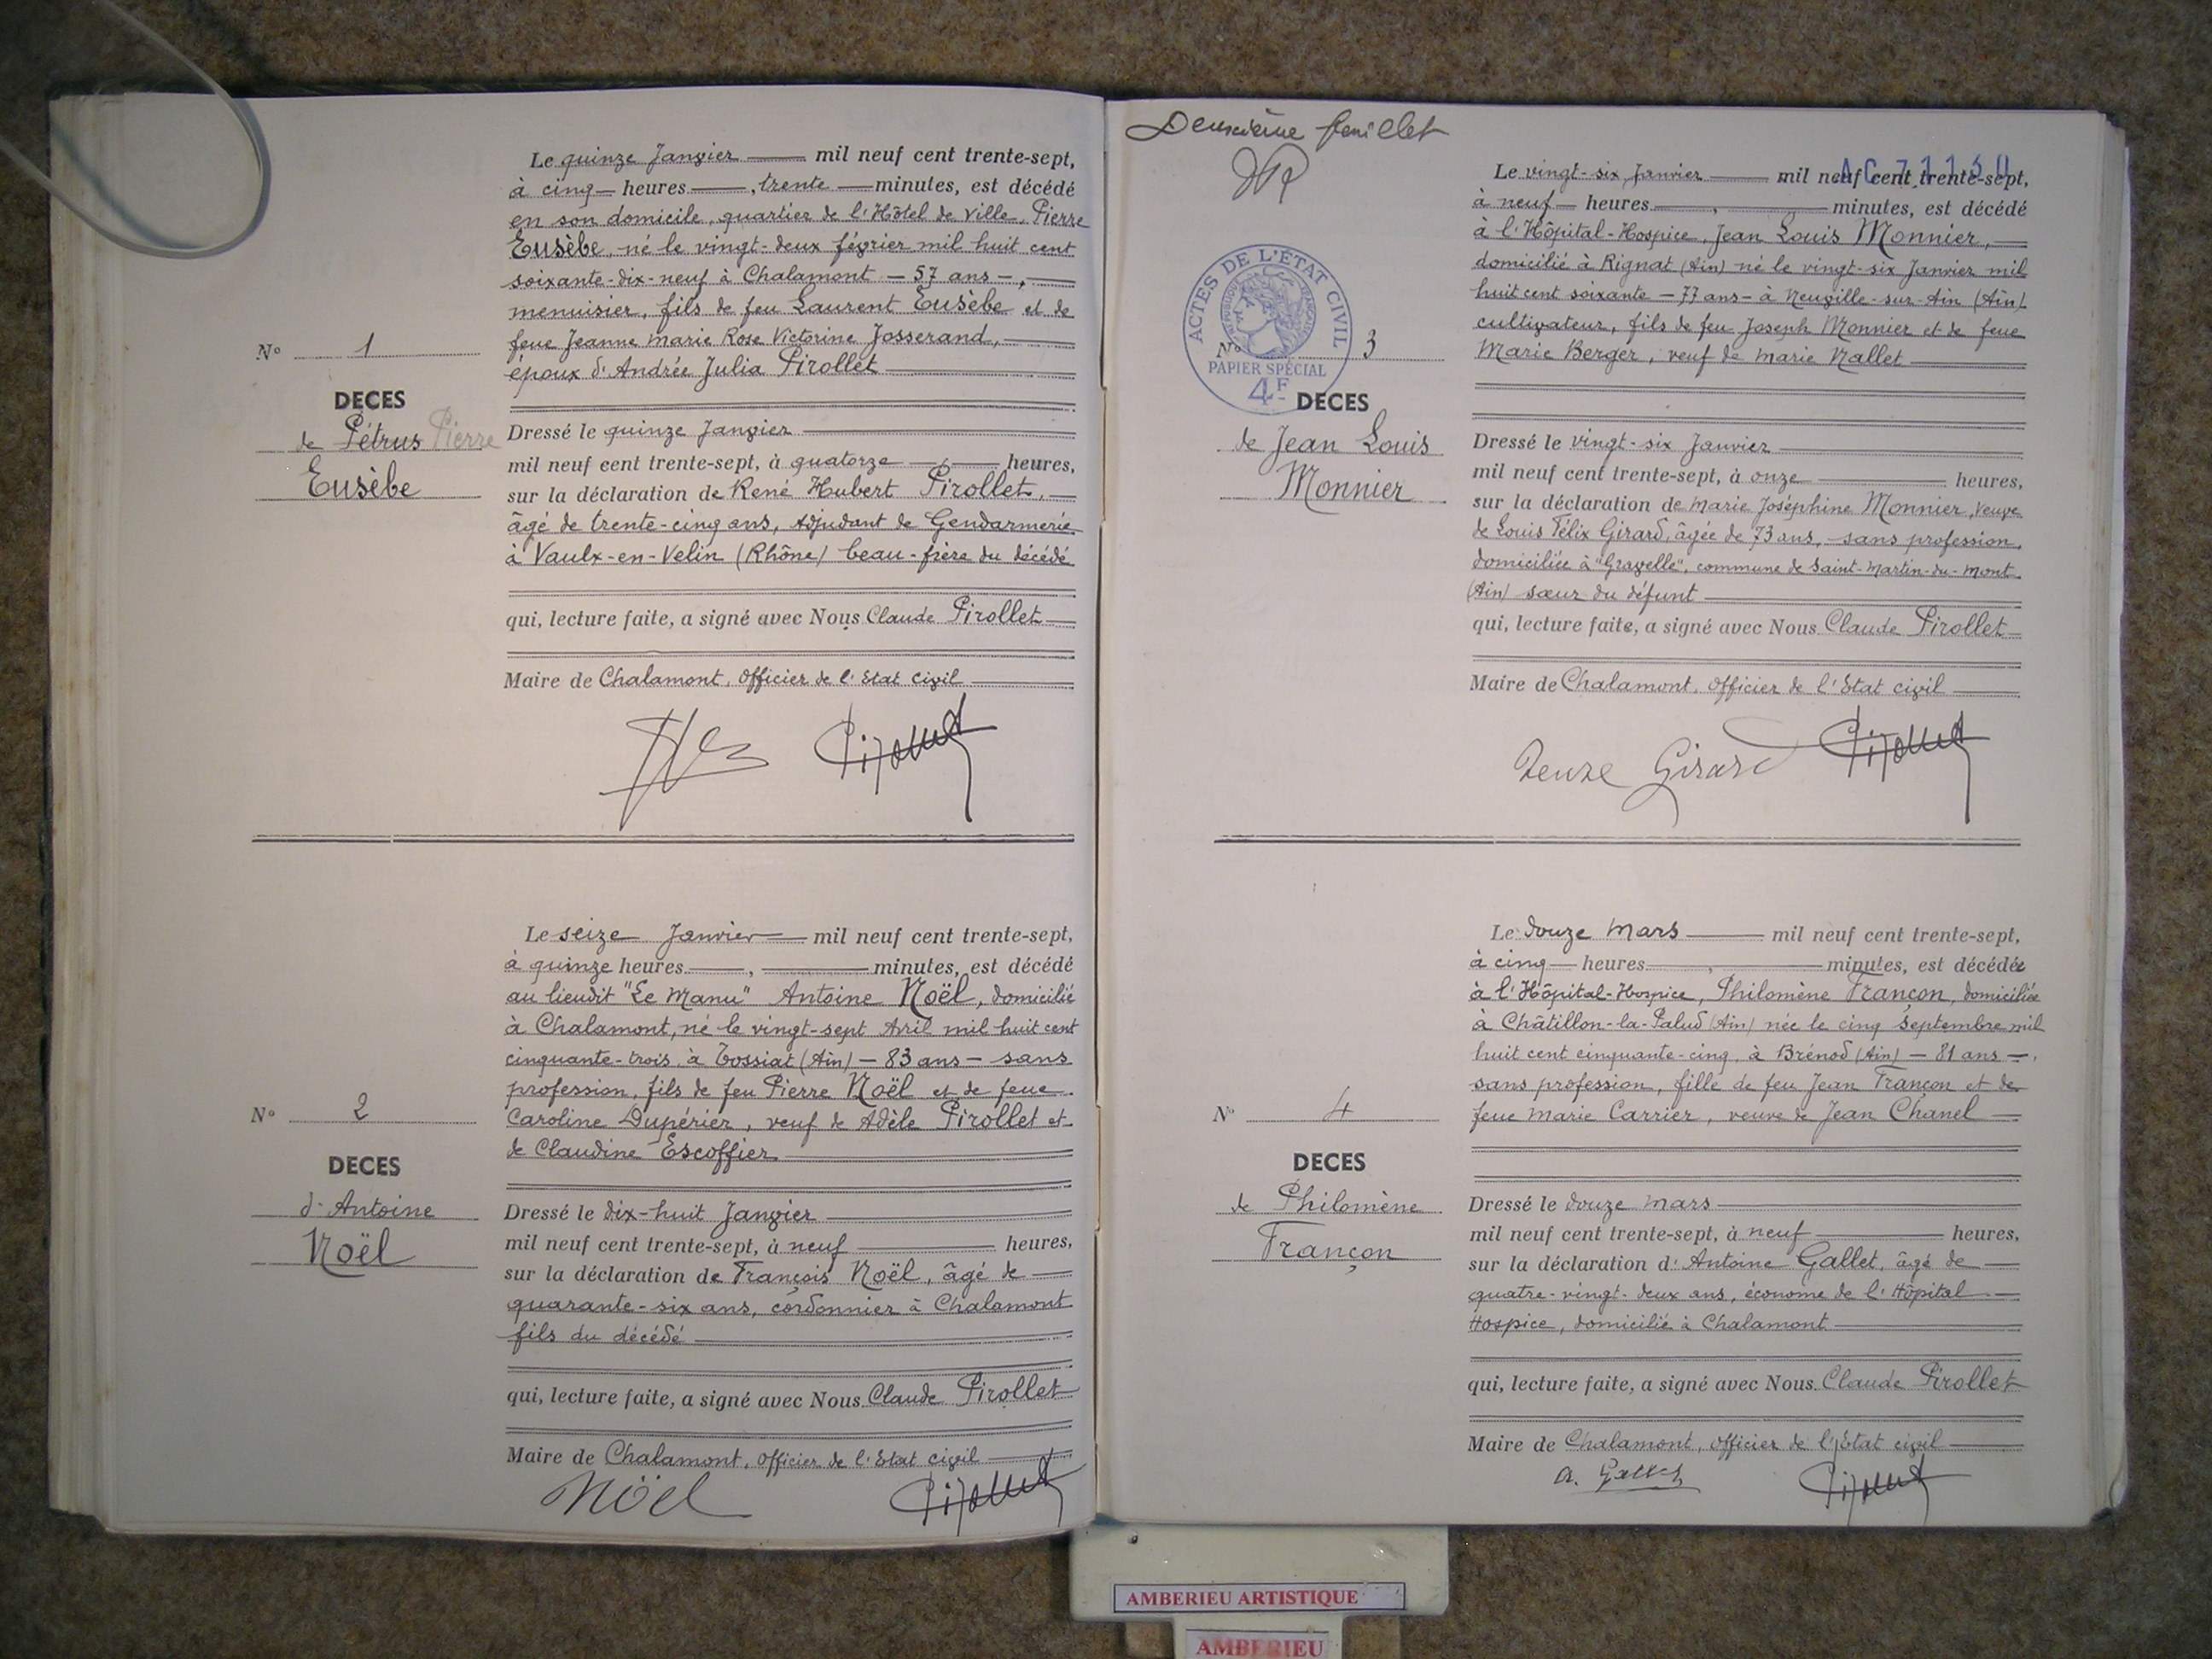 Le quinze Janvier mil neuf cent trente-sept,
à cinq heures, trente minutes, est décédé
en son domicile, quartier de l'Hôtel de Ville, Pierre
Eusèbe, né le vingt-deux février mil huit cent
soixante-dix-neuf à Chalamont - 57 ans -,
menuisier, fils de feu Laurent Eusèbe et de
feue Jeanne Marie Rose Victorine Josserand,
époux d'Andrée Julia Pirollet
N° 1
DECES
de Pétrus Pierre
Eusèbe
Dressé le quinze Janvier
mil neuf cent trente-sept, à quatorze heures,
sur la déclaration de René Hubert Pirollet,
âgé de trente-cinq ans, Adjudant de Gendarmerie
à Vaulx-en-Velin (Rhône) beau-frère du décédé
qui, lecture faite, a signé avec Nous Claude Pirollet
Maire de Chalamont, Officier de l'Etat civil
Pirollet
Le seize Janvier mil neuf cent trente-sept,
à quinze heures, minutes, est décédé
au lieudit "Le Manu" Antoine Noël, domicilié
à Chalamont, né le vingt-sept Avril mil huit cent
cinquante-trois, à Tossiat (Ain) - 83 ans - sans
profession, fils de feu Pierre Noël et de feue
Caroline Dupérier, veuf de Adèle Pirollet et
de Claudine Escoffier
N° 2
DECES
d'Antoine
Noël
Dressé le dix-huit Janvier
mil neuf cent trente-sept, à neuf heures,
sur la déclaration de François Noël, âgé de
quarante-six ans, cordonnier à Chalamont
fils du décédé
qui, lecture faite, a signé avec Nous Claude Pirollet
Maire de Chalamont, Officier de l'Etat civil
Nöel Pirollet
Deuxième feuillet
Le vingt-six Janvier mil neuf cent trente-sept,
à neuf heures, minutes, est décédé
à l'Hôpital-Hospice, Jean Louis Monnier,
domicilié à Rignat (Ain) né le vingt-six Janvier mil
huit cent soixante - 77 ans - à Neuville-sur-Ain (Ain)
cultivateur, fils de feu Joseph Monnier et de feue
Marie Berger, veuf de Marie Nallet
ACTES DE L'ETAT CIVIL
REPUBLIQUE FRANÇAISE
PAPIER SPÉCIAL
4F
N° 3
DECES
de Jean Louis
Monnier
Dressé le vingt-six Janvier
mil neuf cent trente-sept, à onze heures,
sur la déclaration de Marie Joséphine Monnier, Veuve
de Louis Félix Girard, âgée de 73 ans, sans profession,
domiciliée à "Gravelle", commune de Saint-Martin-du-Mont
(Ain) sœur du défunt
qui, lecture faite, a signé avec Nous Claude Pirollet
Maire de Chalamont, Officier de l'Etat civil
Girard Pirollet
Le douze Mars mil neuf cent trente-sept,
à cinq heures, minutes, est décédée
à l'Hôpital-Hospice, Philomène Françon, domiciliée
à Châtillon-la-Palud (Ain) née le cinq Septembre mil
huit cent cinquante-cinq, à Brénod (Ain) - 81 ans -,
sans profession, fille de feu Jean Françon et de
feue Marie Carrier, veuve de Jean Chanel
N° 4
DECES
de Philomène
Françon
Dressé le douze Mars
mil neuf cent trente-sept, à neuf heures,
sur la déclaration d'Antoine Gallet, âgé de
quatre-vingt-deux ans, économe de l'Hôpital
Hospice, domicilié à Chalamont
qui, lecture faite, a signé avec Nous Claude Pirollet
Maire de Chalamont, Officier de l'Etat civil
A. Gallet Pirollet
AMBERIEU ARTISTIQUE
AMBERIEU